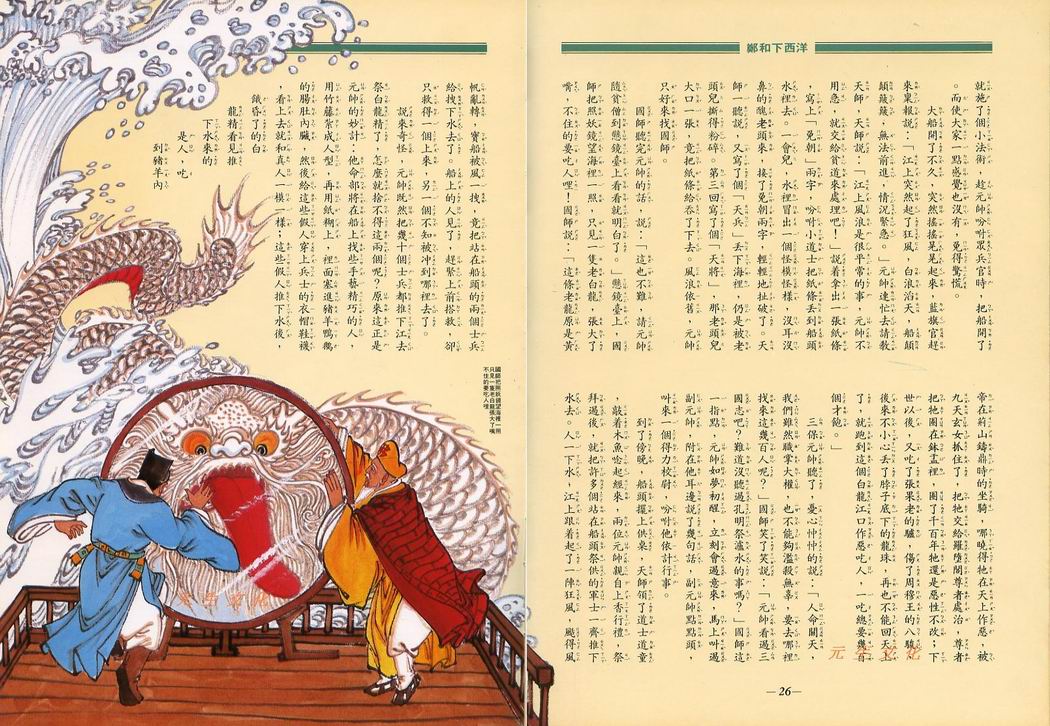 鄭和下西洋
就施了個小法術，趁元帥吩咐眾兵官時，把船開了
。而使大家一點感覺也沒有，免得驚慌。
大船開了不久，突然搖搖晃晃起來，藍旗官趕
來稟報說：「江上突然起了狂風，白浪滔天，船顛
顛簸簸，無法前進，情況緊急。」元帥連忙去請教
天師，天師說：「江上風浪是很平常的事，元帥不
用急，就交給貧道來處理吧！」說著拿出一張紙條
，寫上「免朝」兩字，吩咐小道士把紙條丟到船頭
水裡去。一會兒，水裡冒出一個怪模怪樣，沒耳沒
鼻的醜老頭來，接了免朝兩字，輕輕地扯破了。天
師一聽說，又寫了個「天兵」丟下海裡，仍是被老
頭兒撕得粉碎。第三回寫了個「天將」，那老頭兒
大口一張，竟把紙條給吞了下去。風浪依舊，元帥
只好來找國師。
國師聽完元帥的話，說：「這也不難，請元帥
隨貧僧到懸鏡臺上一看就明白了。」懸鏡臺上，國
師把照妖鏡望海裡一照，只見一隻老白龍，張大了
嘴，不住的要吃人哩！國師說：「這條老龍原是黃
帝在荊山鑄鼎時的坐騎，哪曉得牠在天上作惡，被
九天玄女抓住了，把牠交給羅墮闍尊者處治，尊者
把牠圈在缽盂裡，困了千百年牠還是惡性不改；下
世以後，又吃了張果老的驢，傷了周穆王的八駿。
後來不小心丟了脖子底下的龍珠，再也不能回天上
了，就跑到這個白龍江口作惡吃人，一吃總要幾百
個才飽。」
三保元帥聽了，憂心忡忡的說：「人命關天，
我們雖然職掌大權，也不能夠濫殺無辜，要去哪裡
找來這幾百人呢？」國師笑了笑說：「元帥看過三
國志吧？難道沒聽過孔明祭瀘水的事嗎？」國師這
一指點，元帥如夢初醒，立刻會過意來，馬上叫過
副元帥，附在他耳邊說了幾句話，副元帥點點頭，
叫來一個得力校尉，吩咐他依計行事。
到了傍晚，船頭擺上供桌，天師領了道士道童
，敲著木魚唸起經來，兩位元帥親自上香行禮，祭
拜過後，就把許多個站在船頭祭供的軍士一齊推下
水去。人一下水，江上跟着起了一陣狂風，颳得風
—26—
帆亂轉，寶船被風一拽，竟把站在船頭的兩個士兵
給找下水去了。船上的人見了，趕緊上前搭救，卻
只救得一個上來，另一個不知被沖到哪裡去了。
說來奇怪，元帥既然把幾十個士兵都推下江去
祭白龍精了，怎麼就捨不得這兩個呢？原來這正是
元帥的妙計：他命部將在船上找些手藝精巧的人，
用竹藤紮成人型，再用紙糊上，裡面塞進豬羊鴨鵝
的腸肚內臟，然後給這些假人穿上兵士的衣帽鞋襪
，看上去就和真人一模一樣，這些假人推下水後，
餓昏了的白
龍精看見推
下水來的
是人，吃
到豬羊內
國師把照妖鏡望海裡一照
只見一隻老白龍張大了嘴
不住的要吃人哩